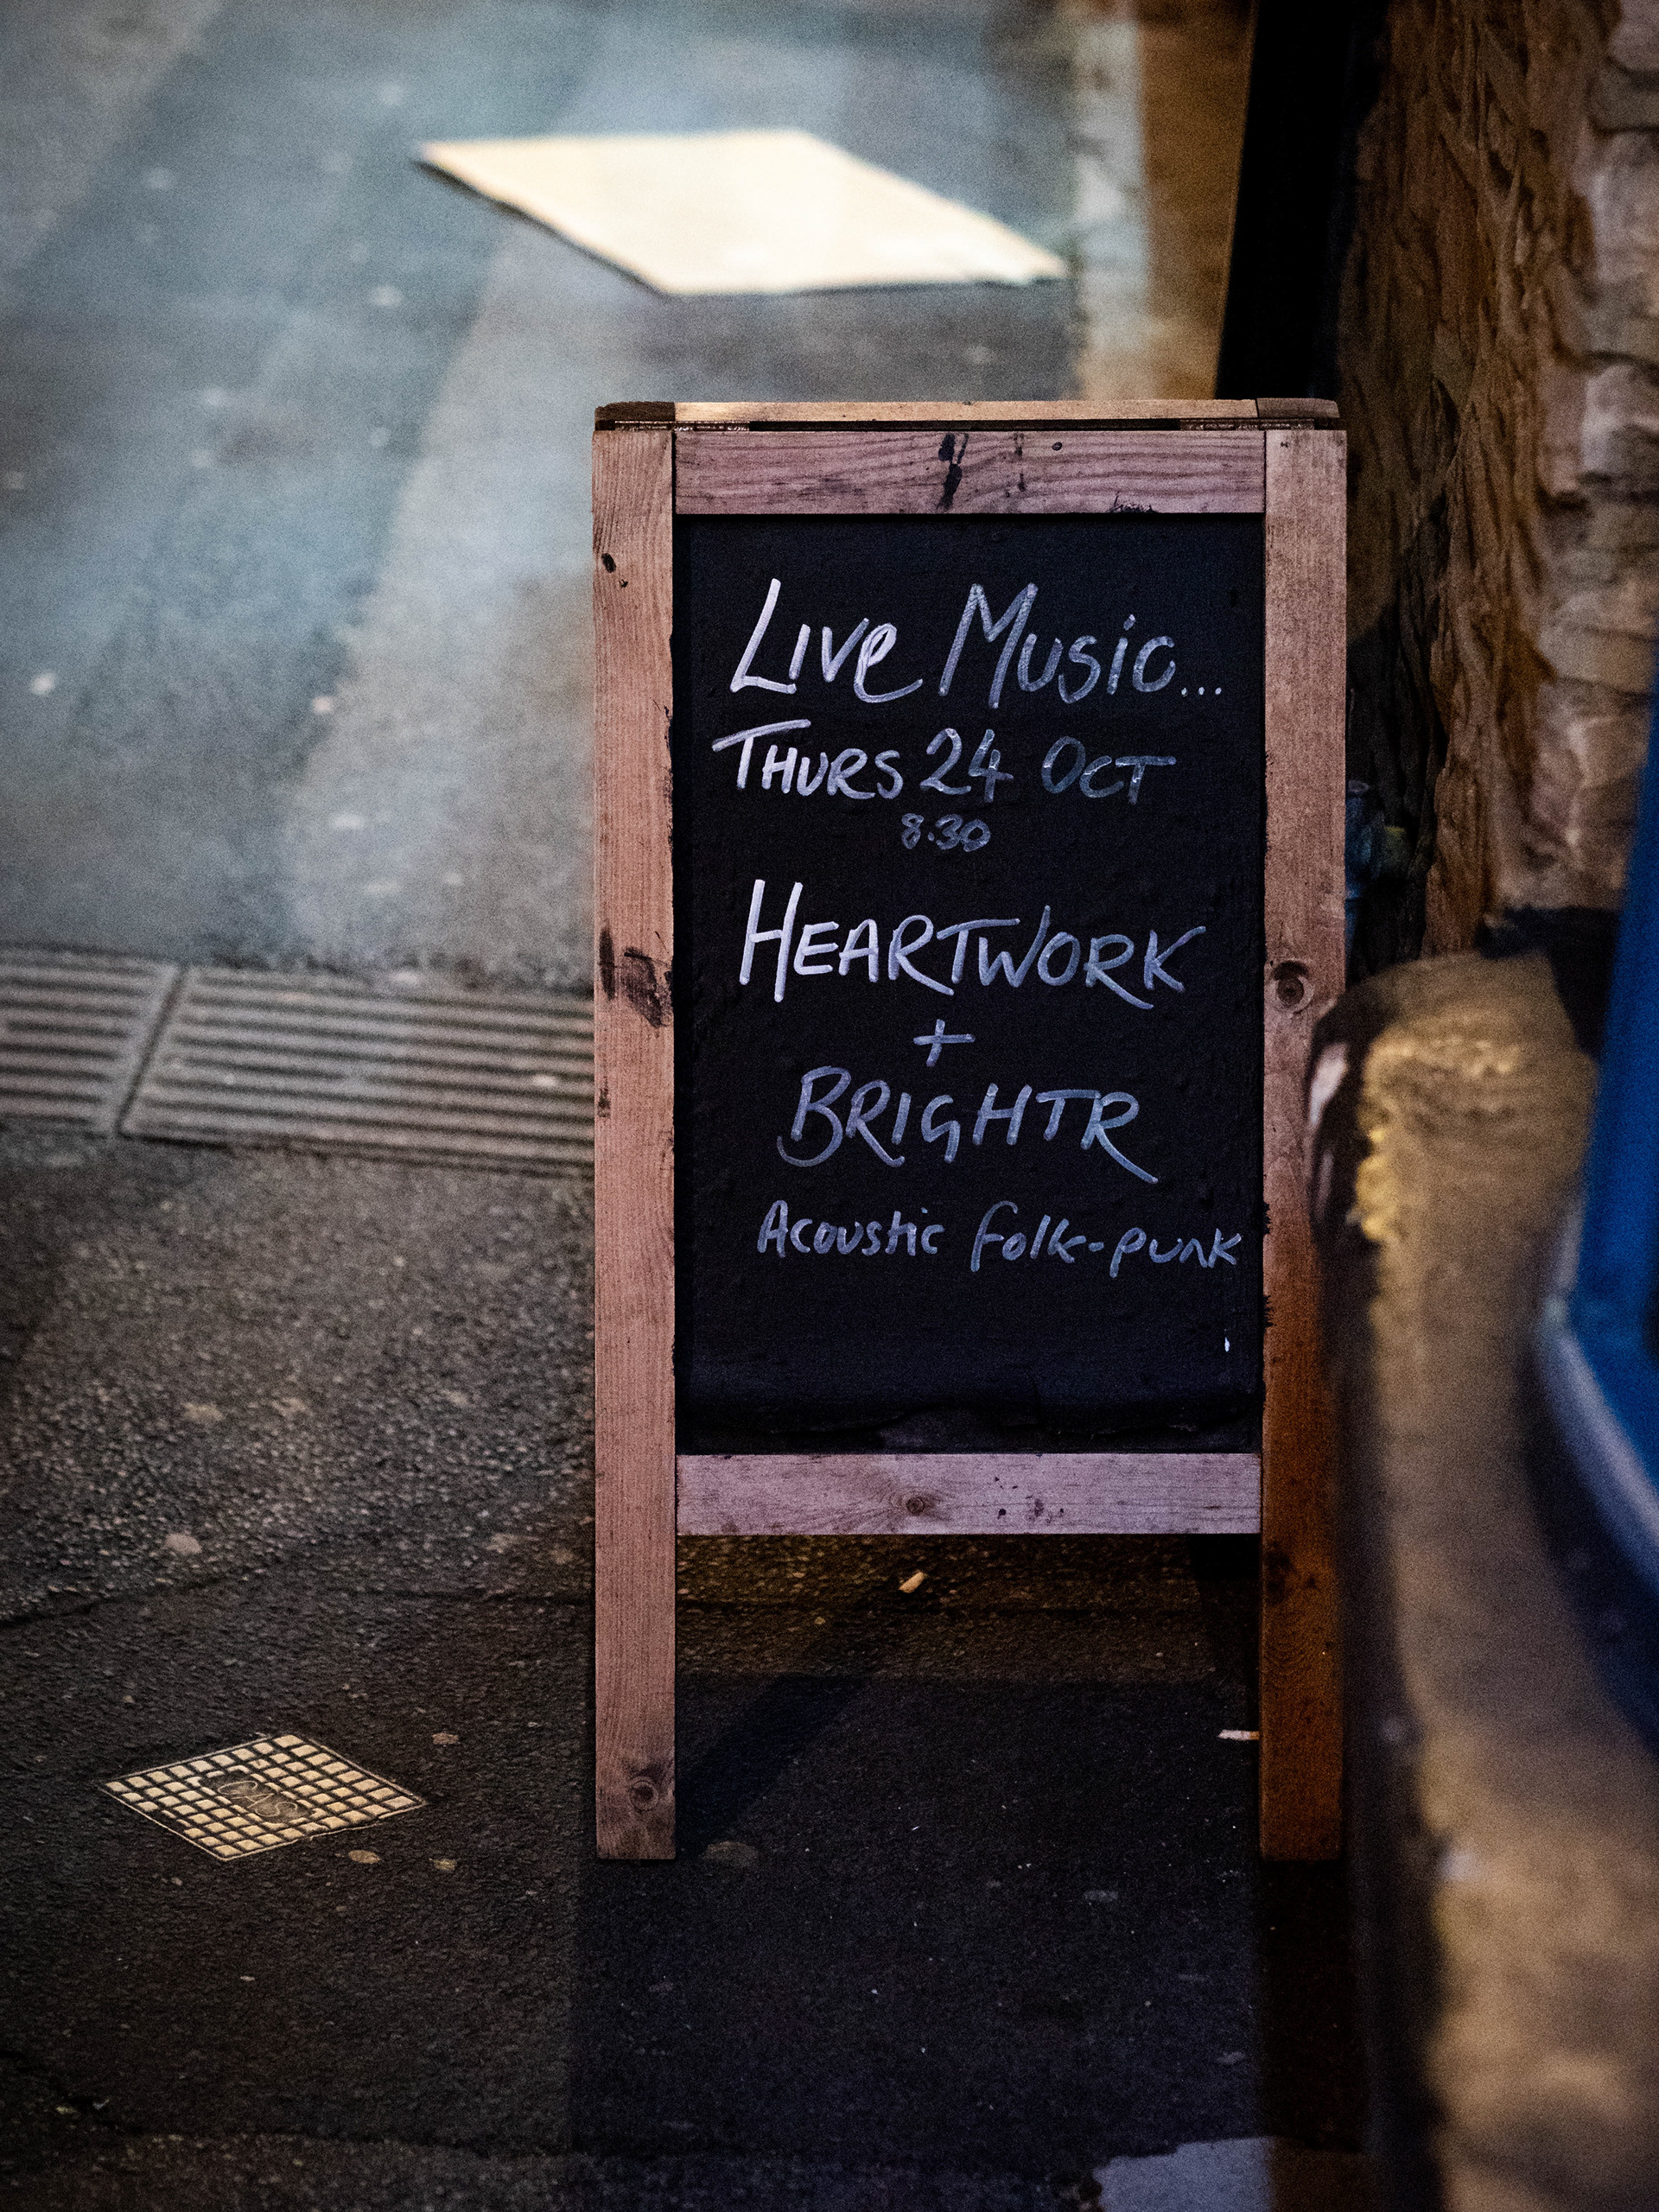 Live Music...
THURS 24 OCT
8.30
HEARTWORK
+
BRIGHTR
Acoustic folk-punk